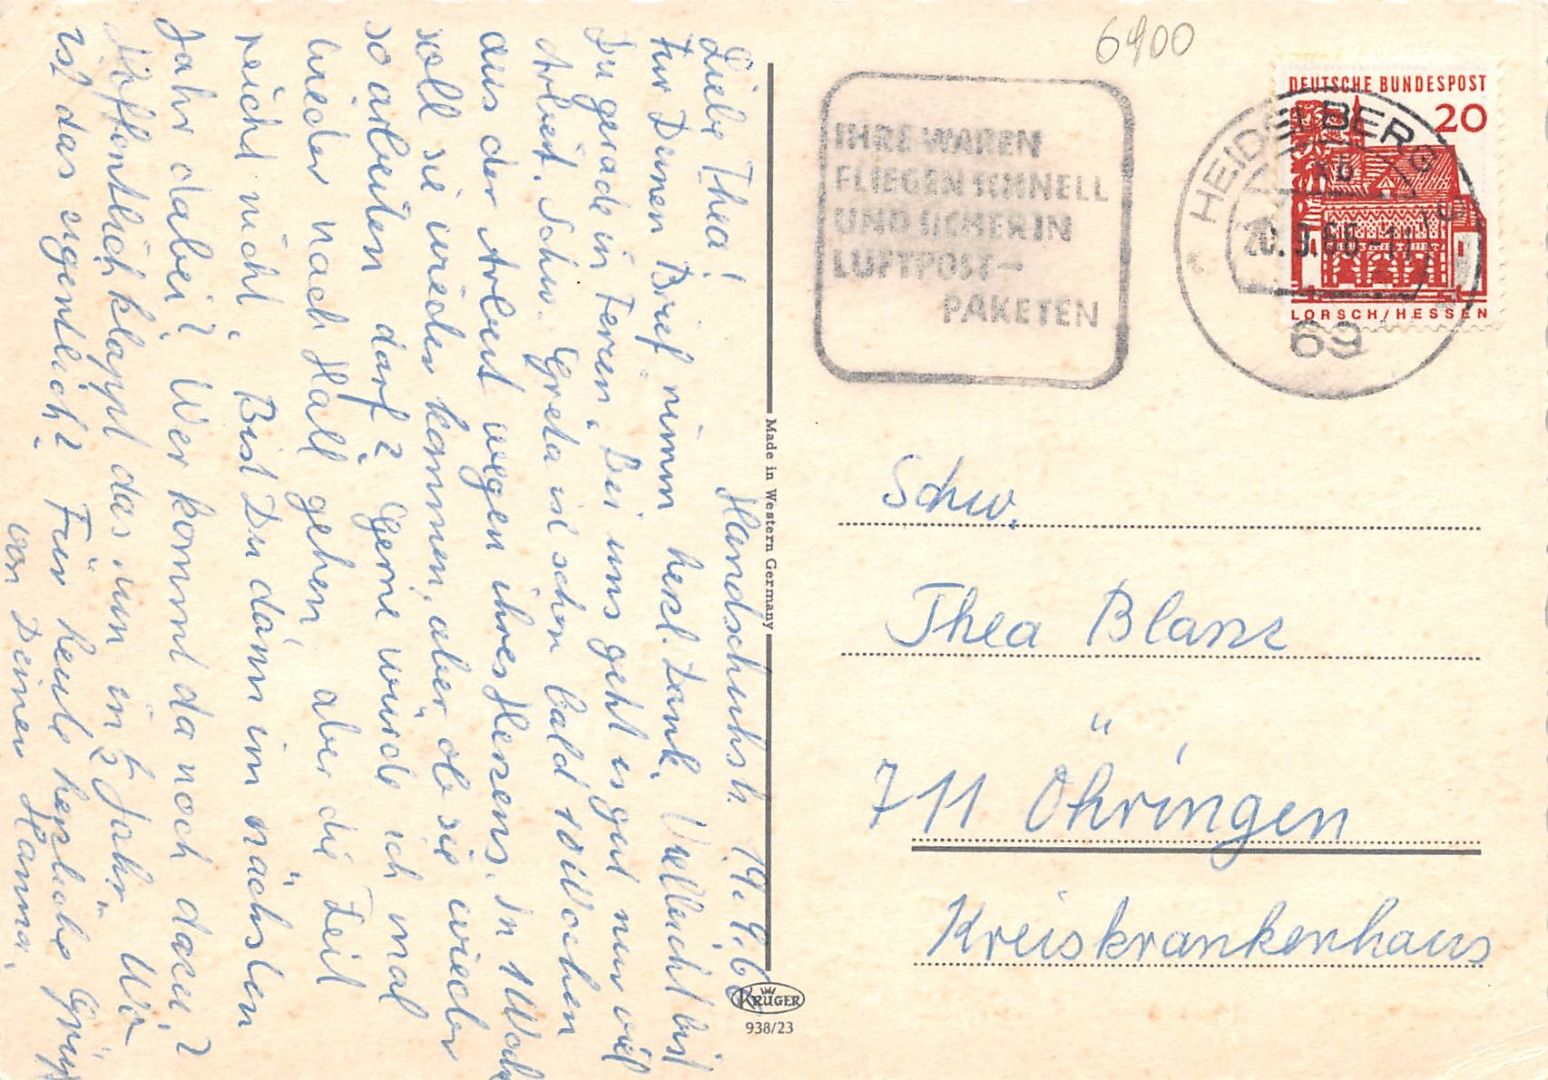 Handschuhsh. 19.9.6
Liebe Thea!
Für Deinen Brief nimm herzl. Dank. Vielleicht bist
Du gerade in Ferien. Bei uns geht es gut nur viel
Arbeit. Schw. Greta ist schon bald 10 Wochen
aus der Arbeit wegen ihres Herzens. In 1 Woche
soll sie wieder kommen, aber ob sie wieder
so arbeiten darf? Gerne würde ich mal
wieder nach Hall gehen, aber die Zeit
reicht nicht. Bist Du dann im nächsten
Jahr dabei? Wer kommt da noch dazu?
Hoffentlich klappt das nun in ½ Jahr. Wo
ist das eigentlich? Für heute herzliche Grüße
von Deiner Hanna.
Made in Western Germany
KRÜGER
938/23
6900
IHRE WAREN
FLIEGEN SCHNELL
UND SICHER IN
LUFTPOST-
PAKETEN
HEIDELBERG
20.9.66-11
69
DEUTSCHE BUNDESPOST
20
LORSCH/HESSEN
Schw.
Thea Blanz
711 Öhringen
Kreiskrankenhaus